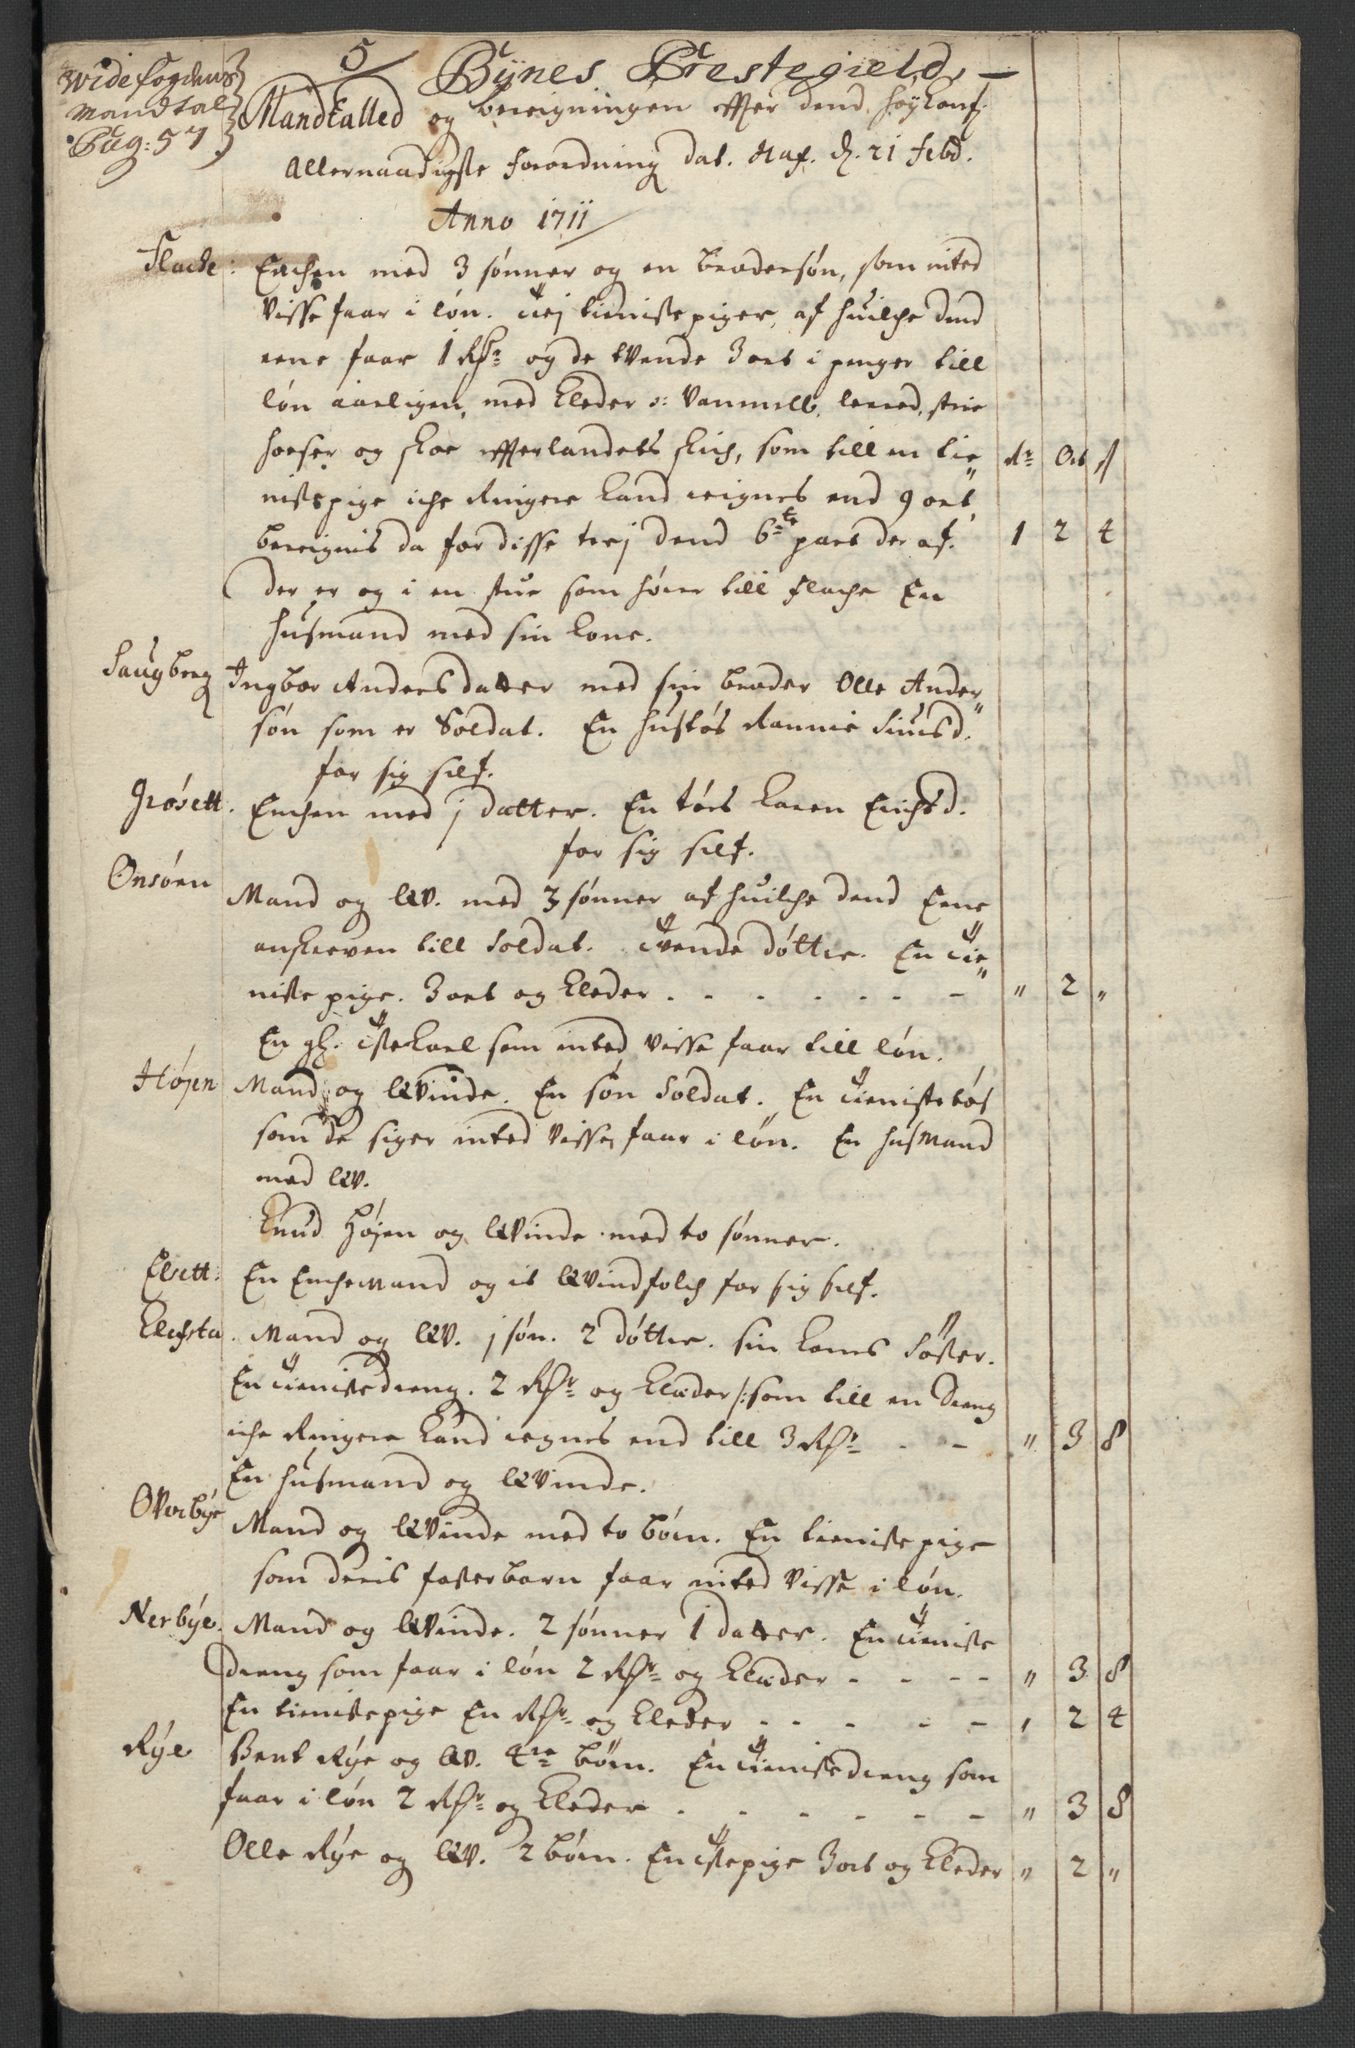 Wide fogdens
Mandtal
Pag: 57
5
Bÿnes Prestegield
Mandtalled og bereigningen effter dend høÿkongl.
Allernaadigste forordning dat. Haf. d. 21 febr.
Anno 1711
Flache: Enchen med 3 sønner og en brodersøn, som inted
visse faar i løn. trej tieniste piger, af huilche dend
eene faar 1 Rdr. og de tvende 3 ort i penger till
løn aarligen, med Kleder o: Vanmell, lerred, strie
hoeser og skoe effter landets skich, som till en tie
nistepige iche Ringere kand reignes end 9 ort,
bereignis da for disse trej dend 6te part der af.
Rdr Ort s
1 2 4
der er og i en stue som hører till flache En
husmand med sin kone.
Saugberg Ingbor Andersdatter med sin broder Olle Ander
søn som er Soldat. En hustøs Rannie Siursd.
for sig self.
Grøsett. Enchen med j datter. En tøes Karen Erichsd.
for sig self.
Onsøen Mand og kv. med 3 sønner af huilche dend Eene
anskreven till Soldat. tvende døttre. En tie
niste pige. 3 ort og kleder . - - - - - - " 2 "
En gl. tiistekarl som inted visse faar till løn.
Højen Mand og kvinde. En søn Soldat. En tieniste tøs
som de siger inted visse faar i løn. En husmand
med kv.
Knud Højen og kvinde med to sønner.
Elsett: En Enchemand og it kvindfolch for sig self.
Klefsta. Mand og kv. j søn. 2 døttre. sin kones Søster.
En tienistedreng. 2 Rdr. og klæder /: som till en dreng
iche Ringere kand regnes end till 3 Rdr - - " 3 8
En husmand og kvinde.
Overbÿe Mand og kvinde med to børn. En tieniste pige
som deris fosterbarn faar inted visse i løn.
Nerbÿe. Mand og kvinde. 2 sønner 1 datter. En tieniste
dreng som faar i løn 2 Rdr. og klæder - - - - " 3 8
En tienistepige En Rdr. og kleder - - - - - " 2 4
Rÿe Bent Rÿe og kv. 4re børn. En tienistedreng som
faar i løn 2 Rdr. og kleder . - - - - - - " 3 8
Olle Rÿe og kv. 2 børn. En tiistepige 3 ort og kleder " 2 "